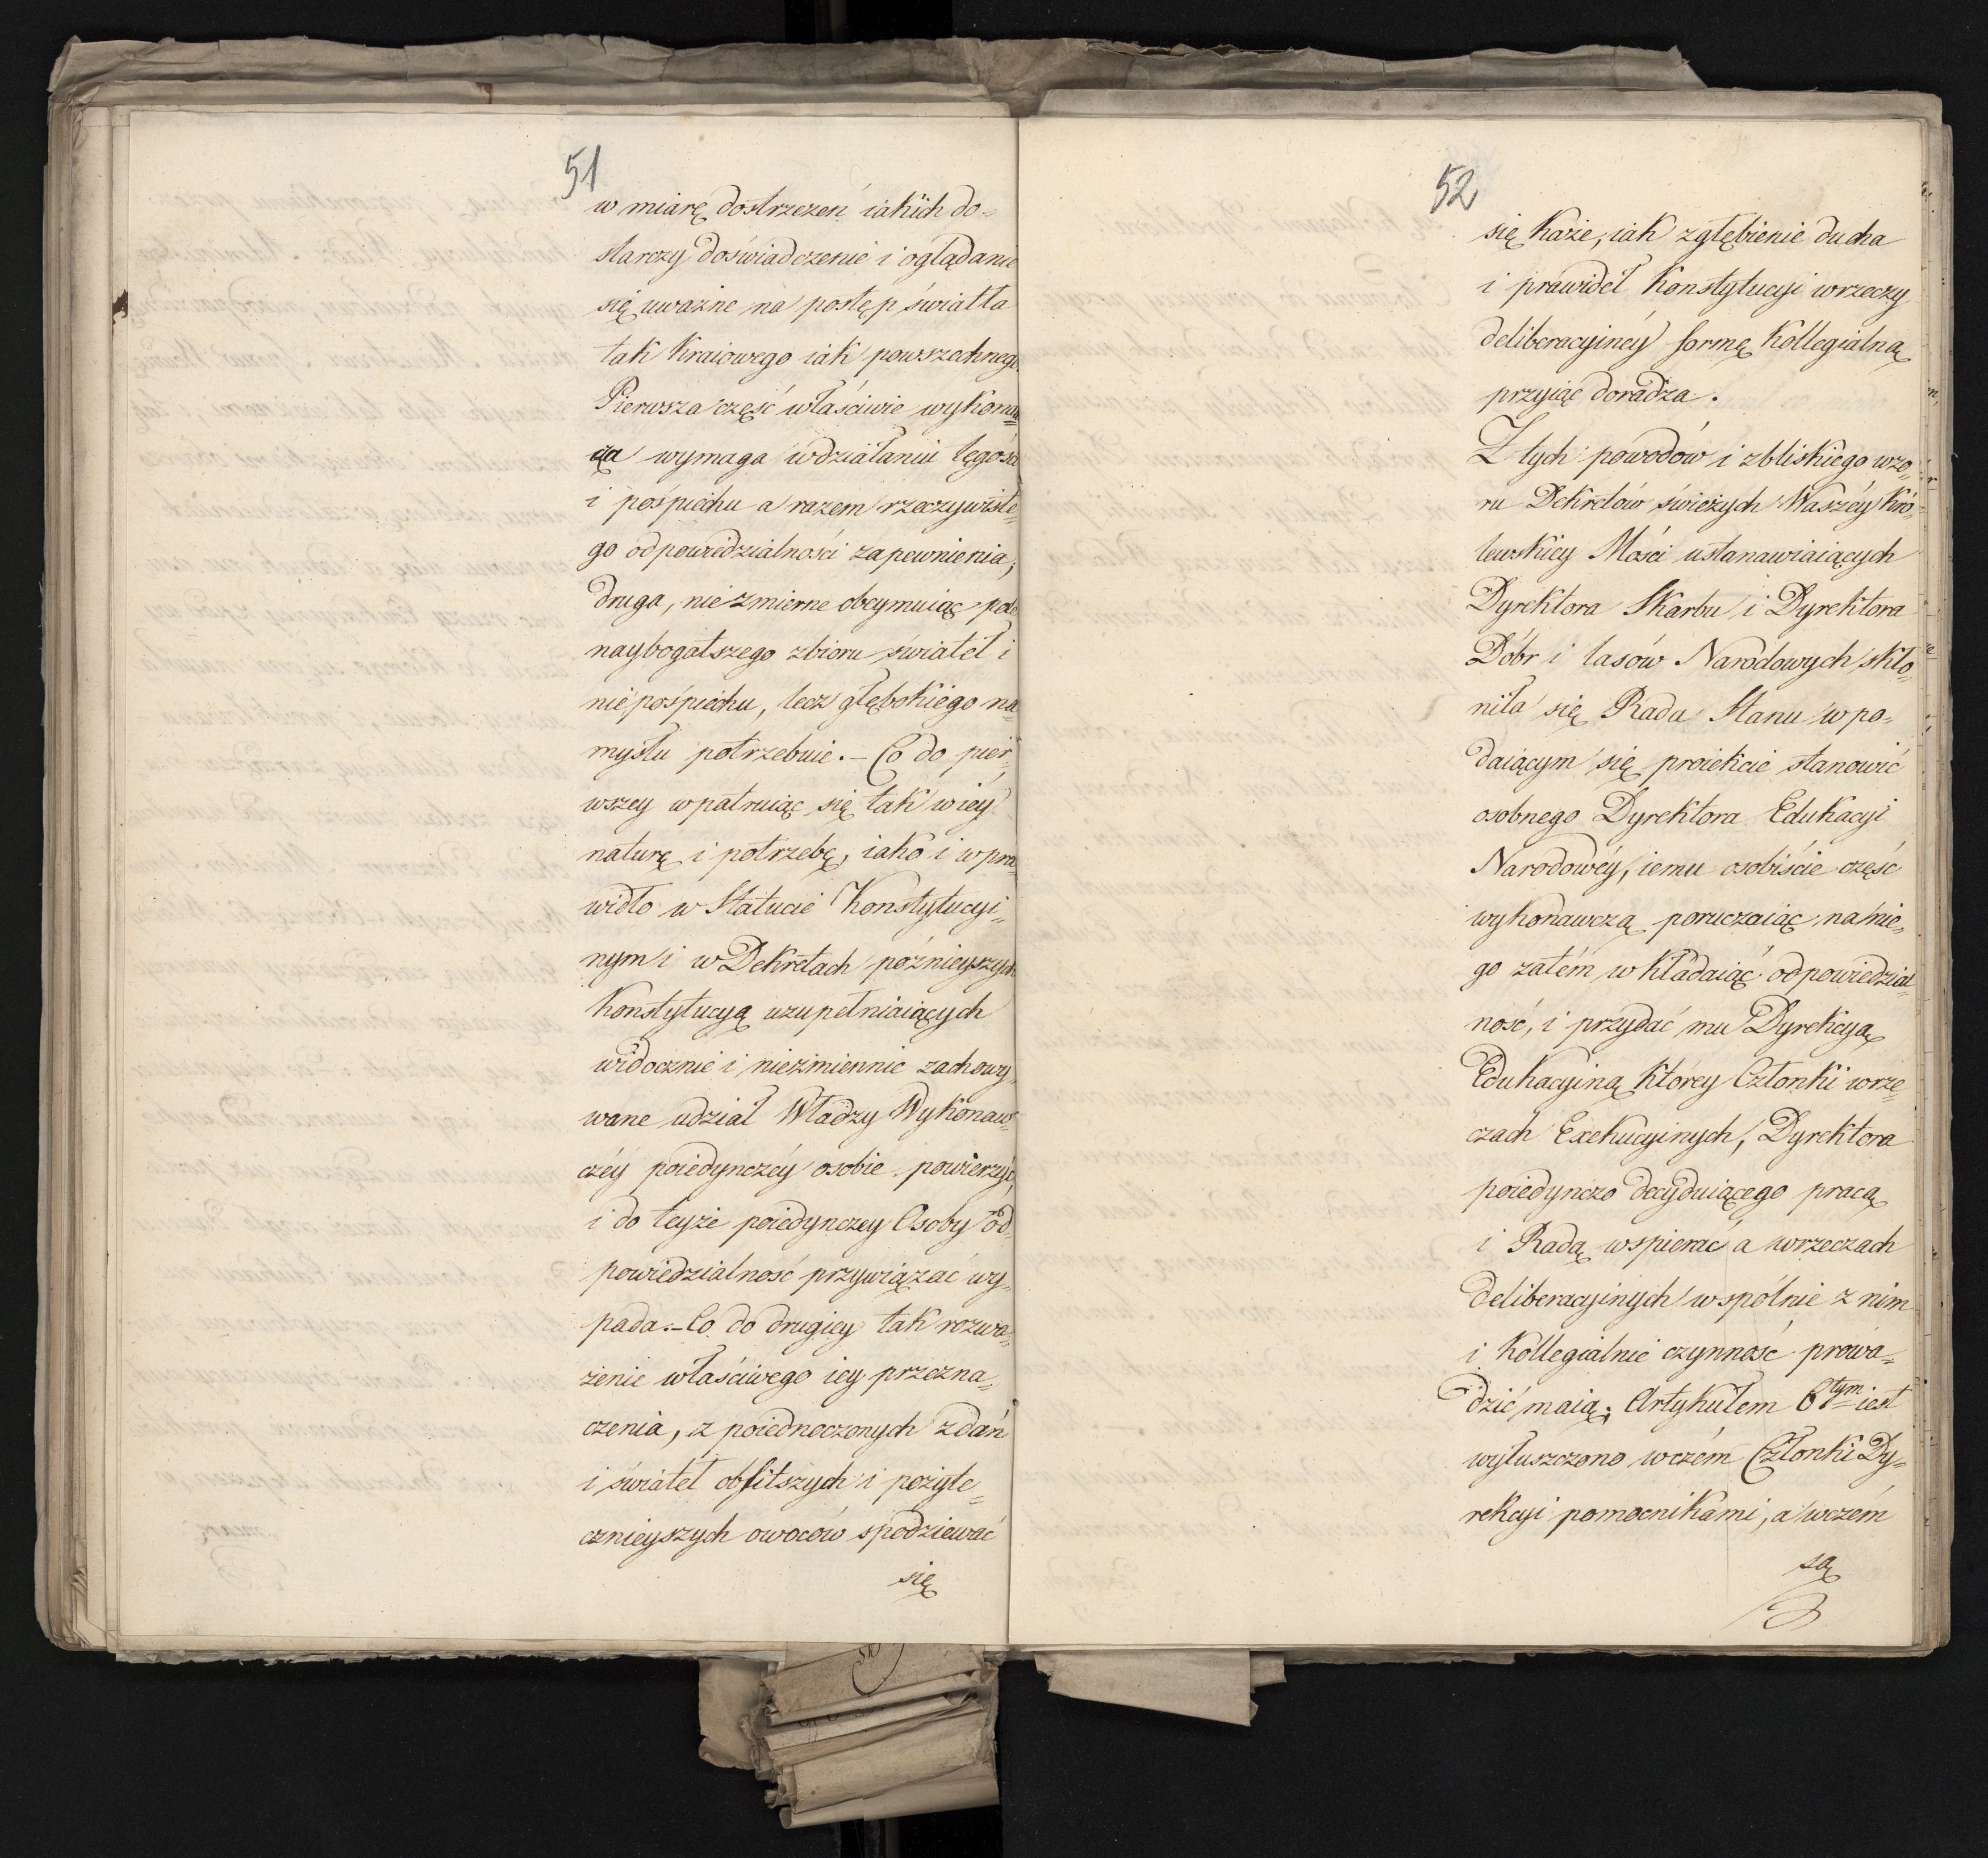 51
w miarę dostrzeżeń iakich do=
starczy doświadczenie i oglądanie
się uważne na postęp światła
tak Kraiowego iak powszechnego
Pierwsza część właściwie wykonaw=
cza wymaga w działaniu tęgości
i pośpiechu a razem rzeczywiste=
go odpowiedzialności zapewnienia,
druga, niezmierne obeymuiąc pole
naybogatszego zbioru świateł i
nie pośpiechu, lecz głębokiego na=
mysłu potrzebuie. – Co do pier=
wszey wpatruiąc się tak w iéy
naturę i potrzebę, iako i w pra=
widło w Statucie Konstytucyi=
nym i w Dekretach poźnieyszych
Konstytucyą uzupełniaiących
widocznie i niezmiennie zachowy=
wane udział Władzy Wykonaw=
czéy poiedynczéy osobie powierzyć,
i do teyże poiedynczey Osoby od=
powiedzialność przywiązać wy=
pada. – Co do drugiey tak rozwa=
żenie właściwego iey przezna=
czenia, z poiednoczonych zdań
i świateł obfitszych i pożyte=
cznieyszych owoców spodziewać
się
52
się każe, iak zgłębienie ducha
i prawideł Konstytucyi w rzeczy
deliberacyinéy formę Kollegialną
przyiąć doradza.
Z tych powodów i z bliskiego wzo=
ru Dekretów świeżych Waszéy Kró=
lewskiey Mości ustanawiaiących
Dyrektora Skarbu i Dyrektora
Dóbr i lasów Narodowych skło=
niła się Rada Stanu w po=
daiącym się proiekcie stanowić
osobnego Dyrektora Edukacyi
Narodowéy, iemu osobiście część
wykonawczą poruczaiąc na nie=
go zatém wkładaiąc odpowiedzial=
ność, i przydać mu Dyrekcyą
Edukacyiną któréy Członki w rze=
czach Exekucyinych, Dyrektora
poiedynczo decyduiącego pracą
i Radą wspierać a w rzeczach
deliberacyinych wspólnie z nim
i Kollegialnie czynność prowa=
dzić maią; Artykułem 6tym iest
wyłuszczono w czém Członki Dy=
rekcyi pomocnikami, a w czém
są